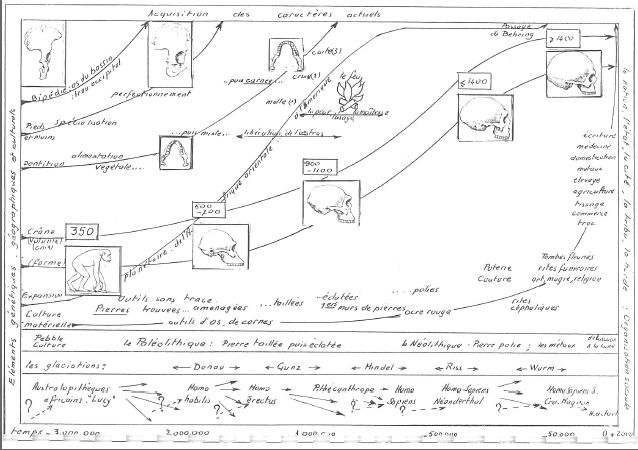 Acquisition des caractères actuels
Passage
de Behring
> 1400
Bipédie: os du bassin
trou occipital
perfectionnement
cuite(s)
crue(s)
...puis carnée...
malle(s)
le feu
d'Amérique
la pour
l'usage
la maîtrise
< 1400
Pieds
et mains
spécialisation
...puis mixte...
libération de l'estrus
Dentition
alimentation
végétale...
planétaire: de l'Afrique orientale...
900
-1100
600
-700
Crâne
(volume)
(cm3)
350
(forme)
écriture
médecine
domestication
métaux
élevage
agriculture
tissage
commerce
troc
Poterie
Couture
Tombes fleuries
rites funéraires
art, magie, religion
rites
céphaliques
Expansion
Culture
matérielle
Outils sans trace
Pierres trouvées... aménagées ...taillées
...éclatées
...polies
1ers murs de pierres
ocre rouge
outils d'os, de cornes
Pebble
Culture
le Paléolithique: Pierre taillée puis éclatée
le Néolithique: Pierre polie; les métaux
les glaciations:
Donau
Gunz
Mindel
Riss
Wurm
Australopithèques
africains "Lucy"
Homo
habilis
Homo
erectus
Pithécanthrope
Homo
Sapiens
Homo Sapiens
Néanderthal
Homo Sapiens S.
Cro. Magnon
H. actuel
?
?
?
?
?
temps -3.000.000
-2000.000
-1000.000
-500.000
-50.000
0
+2000
Eléments génétiques, géographiques et culturels
la nation, l'état, la cité, la tribu, la horde: Organisation sociale